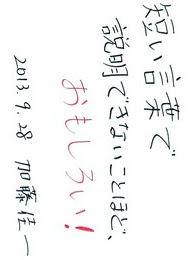 短い言葉で
説明できないことほど、
おもしろい!
2013.9.28 加藤佳一